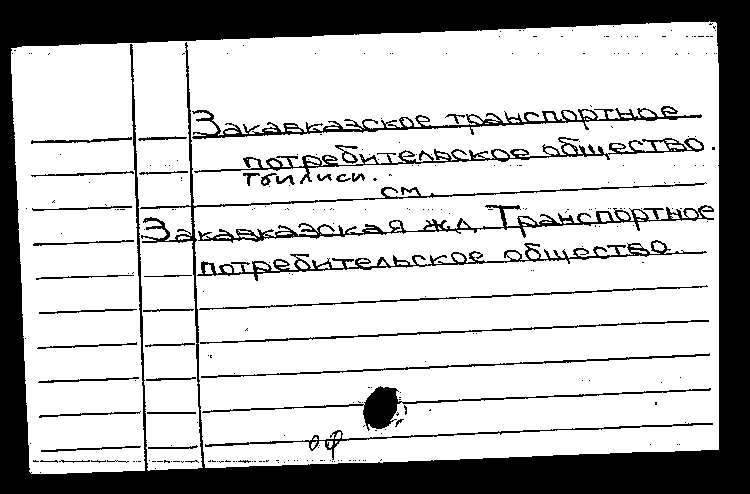 Закавказское транспортное
потребительское общество.
Тбилиси.
см.
Закавказская жд. Транспортное
потребительское общество.
оф